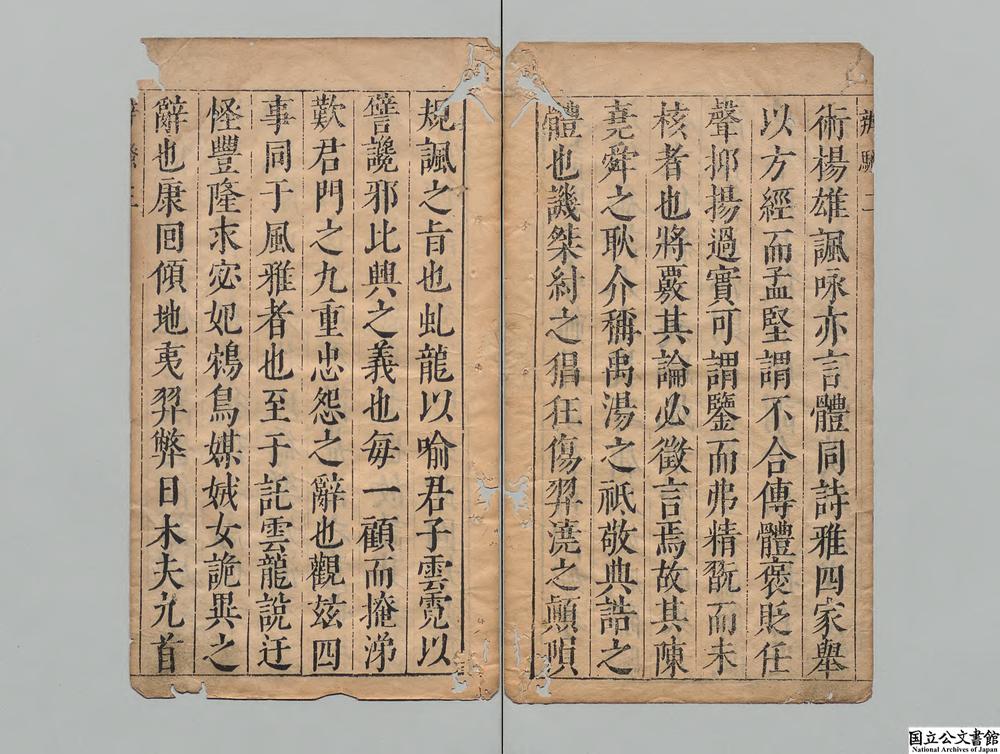 辨騷 二
術楊雄諷咏亦言體同詩雅四家舉
以方經而孟堅謂不合傳體褒貶任
聲抑揚過實可謂鑒而弗精翫而未
核者也將覈其論必徵言焉故其陳
堯舜之耿介稱禹湯之祗敬典誥之
體也譏桀紂之猖狂傷羿澆之顛隕
規諷之旨也虬龍以喻君子雲霓以
譬讒邪比興之義也每一顧而掩涕
歎君門之九重忠怨之辭也觀玆四
事同于風雅者也至于託雲龍說迂
怪豐隆求宓妃鴆鳥媒娀女詭異之
辭也康回傾地夷羿弊日木夫九首
国立公文書館
National Archives of Japan